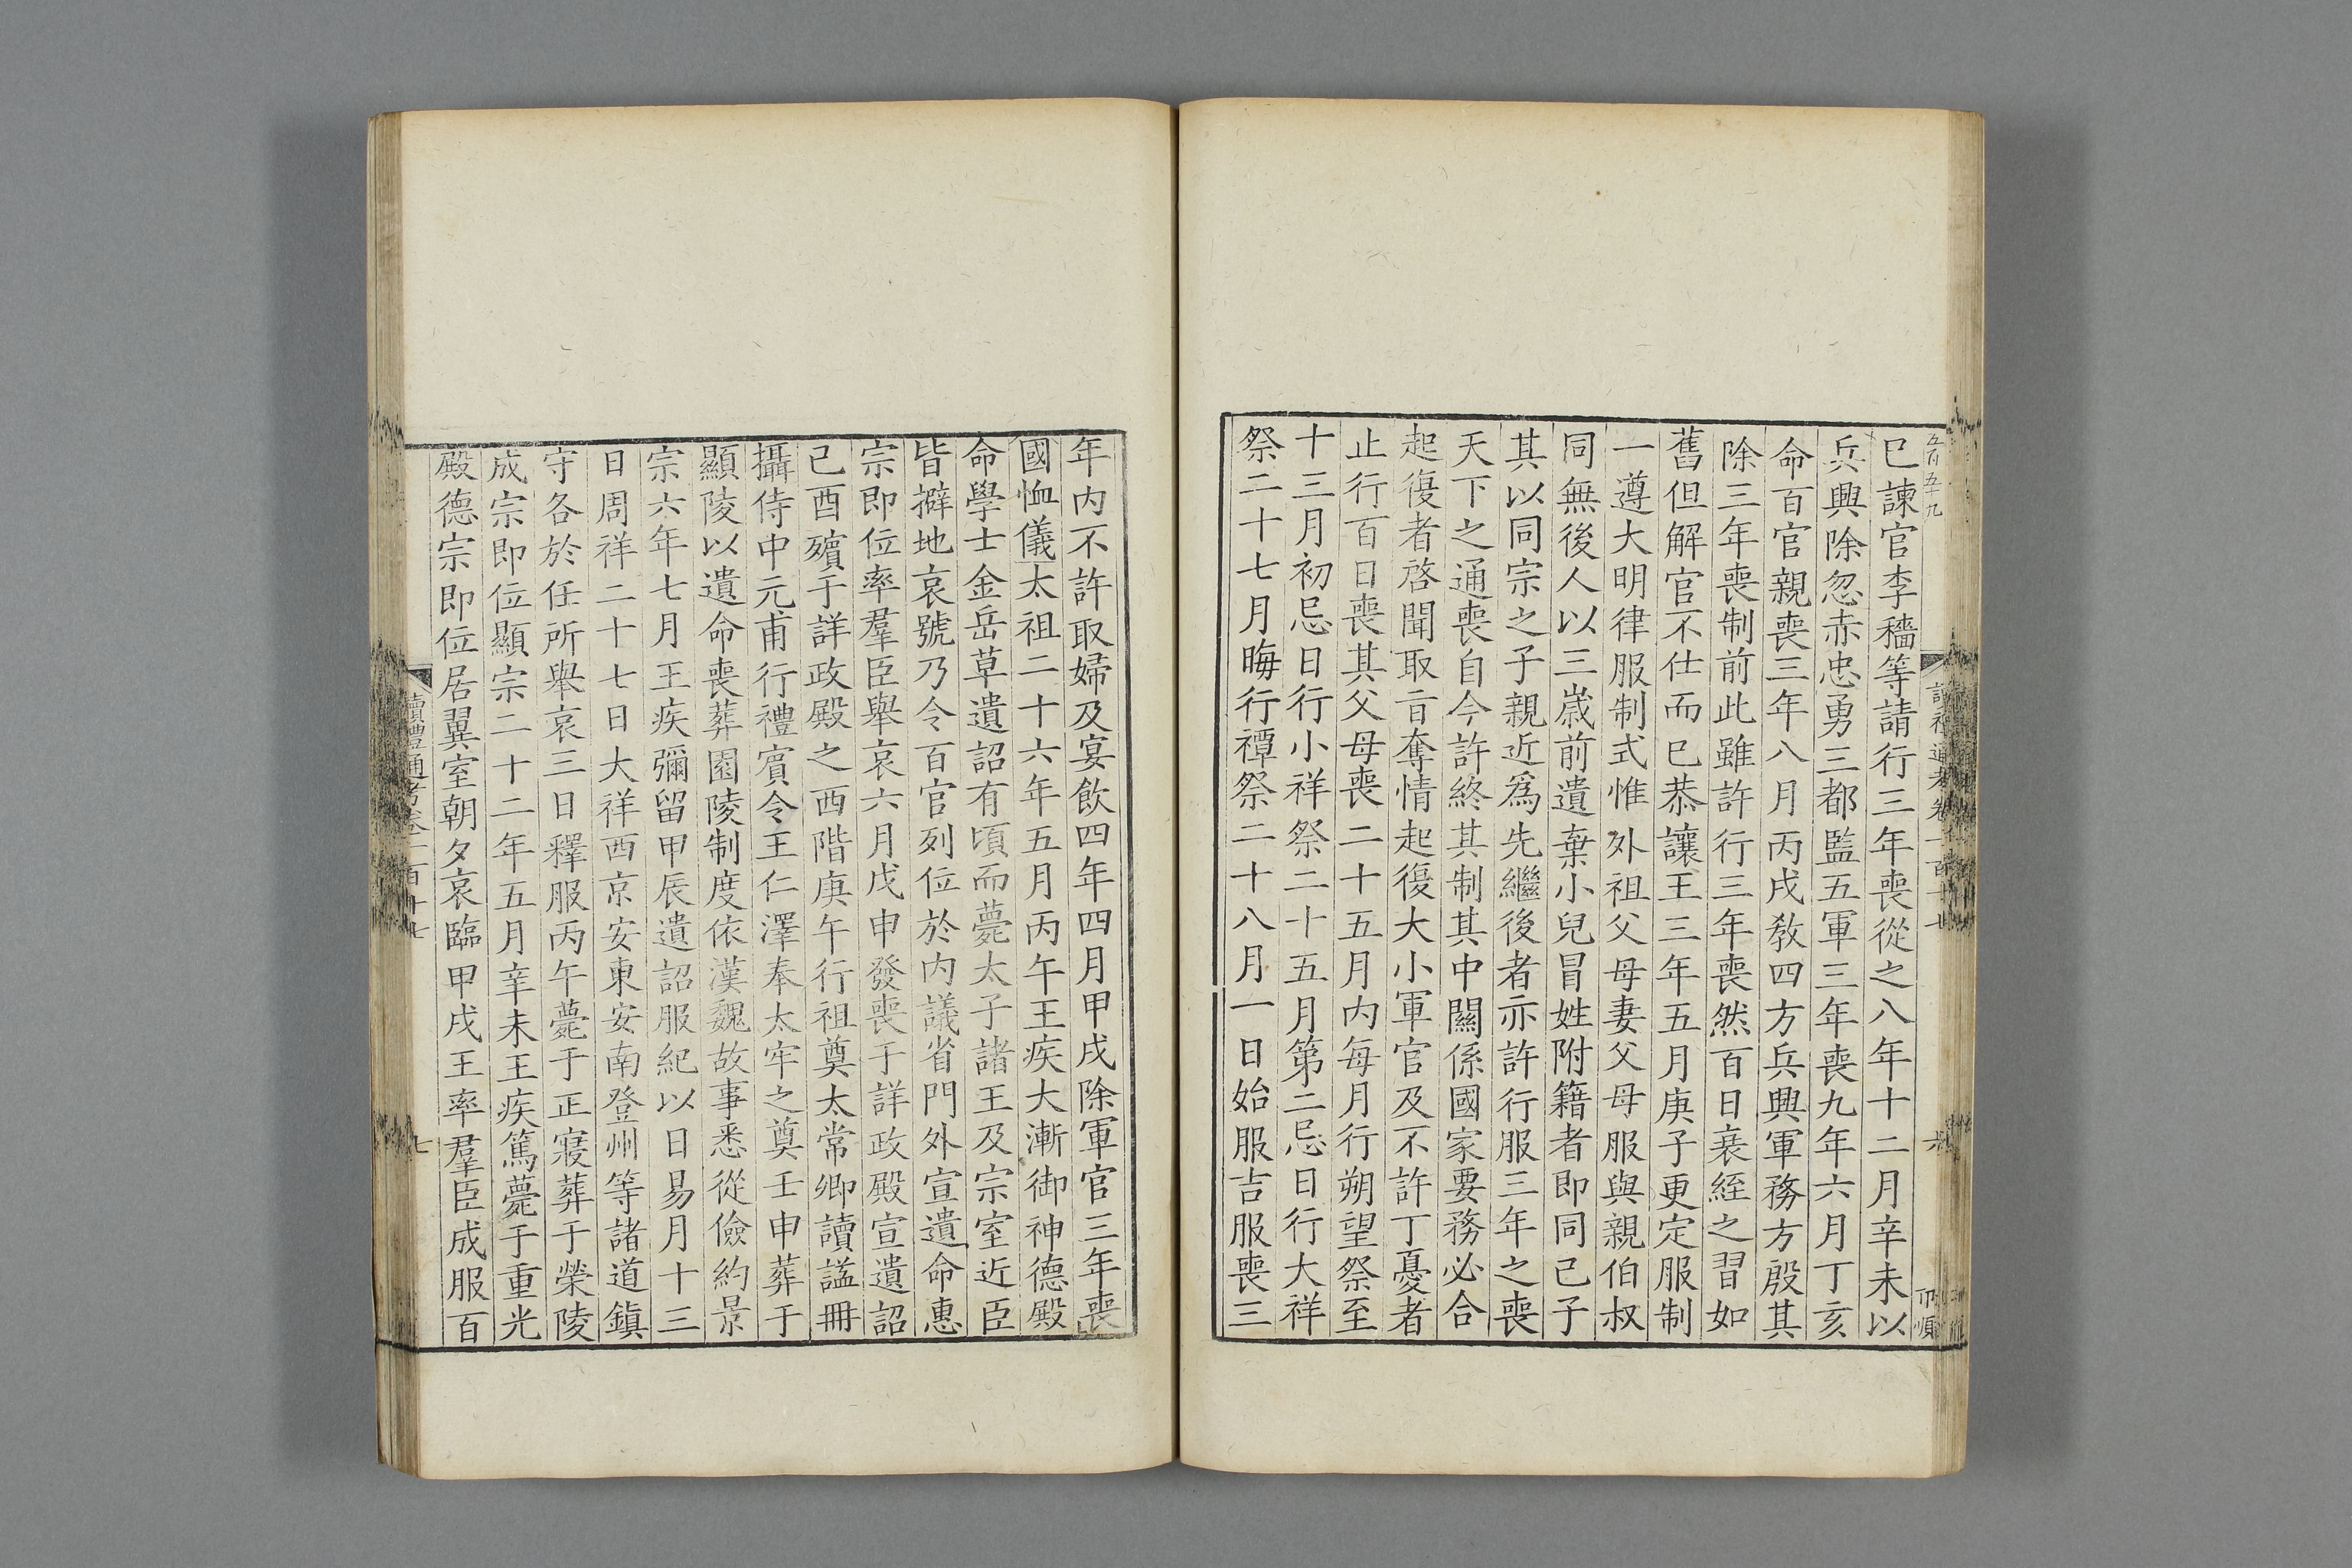 巳諫官李穡等請行三年喪從之八年十二月辛未以
兵興除忽赤忠勇三都監五軍三年喪九年六月丁亥
命百官親喪三年八月丙戌敎四方兵興軍務方殷其
除三年喪制前此雖許行三年喪然百日衰絰之習如
舊但解官不仕而已恭讓王三年五月庚子更定服制
一遵大明律服制式惟外祖父母妻父母服與親伯叔
同無後人以三嵗前遺棄小兒冒姓附籍者即同己子
其以同宗之子親近爲先繼後者亦許行服三年之喪
天下之通喪自今許終其制其中關係國家要務必合
起復者啓聞取㫖奪情起復大小軍官及不許丁憂者
止行百日喪其父母喪二十五月内每月行朔望祭至
十三月初忌日行小祥祭二十五月第二忌日行大祥
祭二十七月晦行禫祭二十八月一日始服吉服喪三
年内不許取婦及宴飲四年四月甲戌除軍官三年喪
國恤儀太祖二十六年五月丙午王疾大漸御神德殿
命學士金岳草遺詔有頃而薨太子諸王及宗室近臣
皆擗地哀號乃令百官列位於内議省門外宣遺命惠
宗即位率羣臣舉哀六月戊申發喪于詳政殿宣遺詔
己酉殯于詳政殿之西階庚午行祖奠太常卿讀謚冊
攝侍中元甫行禮賓令王仁澤奉太牢之奠壬申葬于
顯陵以遺命喪葬園陵制度依漢魏故事悉從儉約景
宗六年七月王疾彌留甲辰遺詔服紀以日易月十三
日周祥二十七日大祥西京安東安南登州等諸道鎭
守各於任所舉哀三日釋服丙午薨于正寢葬于榮陵
成宗即位顯宗二十二年五月辛未王疾篤薨于重光
殿德宗即位居翼室朝夕哀臨甲戌王率羣臣成服百
讀禮通考卷一百十七
七